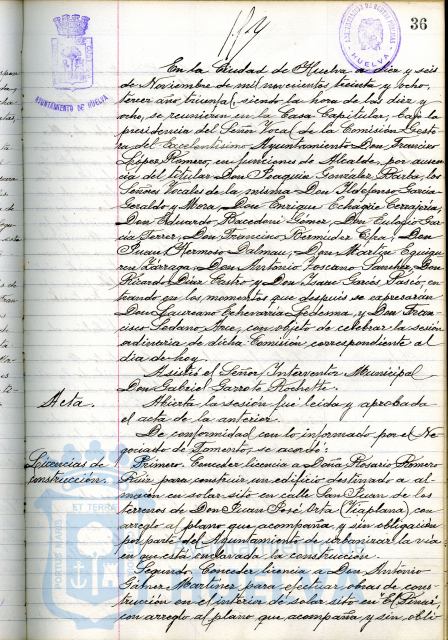 36
AYUNTAMIENTO DE HUELVA
HUELVA
En la Ciudad de Huelva a diez y seis
de Noviembre de mil novecientos treinta y ocho,
tercer año triunfal, siendo la hora de las diez y
ocho, se reunieron en la Casa Capitular, bajo la
presidencia del Señor Vocal de la Comisión Gesto
ra del Excelentísimo Ayuntamiento Don Francisco
López Romero, en funciones de Alcalde, por ausen
cia del titular Don Joaquín González Barba, los
Señores Vocales de la misma Don Ildefonso García
Geraldo y Mora, Don Enrique Echagüe
Don Eduardo Gómez, Don Eulogio Gar
cia Ferrer, Don Francisco Bermúdez Don
Juan Hermoso Dalmau, Don Martín Eguigu
ren Zárraga, Don Antonio Toscano Sánchez, Don
Ricardo Díaz Castro y Don Isaac Garcés Gascó, en
trando en los momentos que después se expresaran
Don Laureano Echevarría Ledesma, y Don Fran
cisco Sedano Arce, con objeto de celebrar la sesión
ordinaria de dicha Comisión correspondiente al
día de hoy.
Asiste el Señor Interventor Municipal
Don Gabriel Garrote Rochette.
Acta.
Abierta la sesión fué leida y aprobada
el acta de la anterior.
De conformidad con lo informado por el Ne
gociado de Fomento, se acordó:
Licencias de
construcción.
Primero. Conceder licencia a Doña Rosario Romero
Ruiz para construir un edificio destinado a al-
macén en solar sito en calle San Juan de los
terrenos de Don Juan José Orta (Viaplana) con
arreglo al plano que acompaña, y sin obligación
por parte del Ayuntamiento de urbanizar la vía
en que está enclavada la construcción.
Segundo. Conceder licencia a Don Antonio
Martínez para efectuar obras de cons-
trucción en el interior de solar sito en "El Pinar"
con arreglo al plano que acompaña, y sin obli-